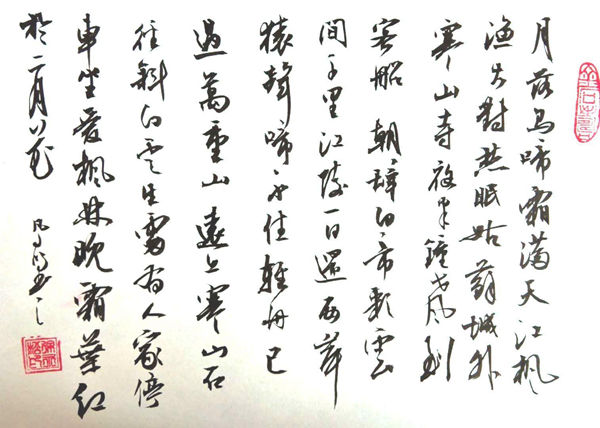 月落烏啼霜滿天江楓
渔火對愁眠姑蘇城外
寒山寺夜半鐘声到
客船朝辞白帝彩雲
間千里江陵一日還两岸
猿聲啼不住輕舟已
過萬重山遠上寒山石
径斜白云生處有人家停
車坐愛楓林晚霜葉红
於二月花